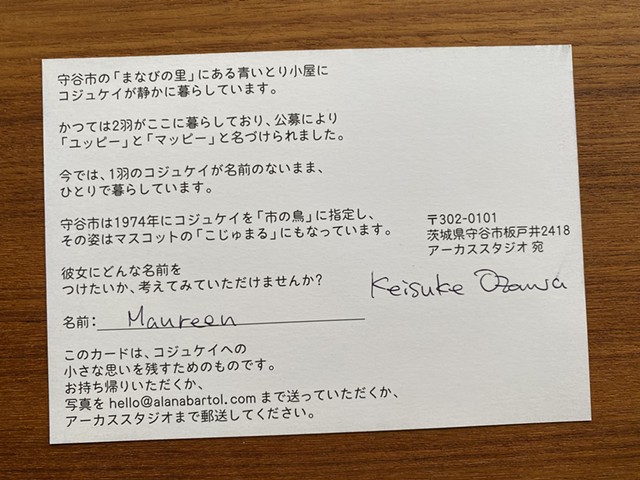 守谷市の「まなびの里」にある青いとり小屋に
コジュケイが静かに暮らしています。
かつては2羽がここに暮らしており、公募により
「ユッピー」と「マッピー」と名づけられました。
今では、1羽のコジュケイが名前のないまま、
ひとりで暮らしています。
守谷市は1974年にコジュケイを「市の鳥」に指定し、
その姿はマスコットの「こじゅまる」にもなっています。
彼女にどんな名前を
つけたいか、考えてみていただけませんか?
名前: Maureen
このカードは、コジュケイへの
小さな思いを残すためのものです。
お持ち帰りいただくか、
写真を hello@alanabartol.com まで送っていただくか、
アーカススタジオまで郵送してください。
〒302-0101
茨城県守谷市板戸井2418
アーカススタジオ 宛
Keisuke Ozawa